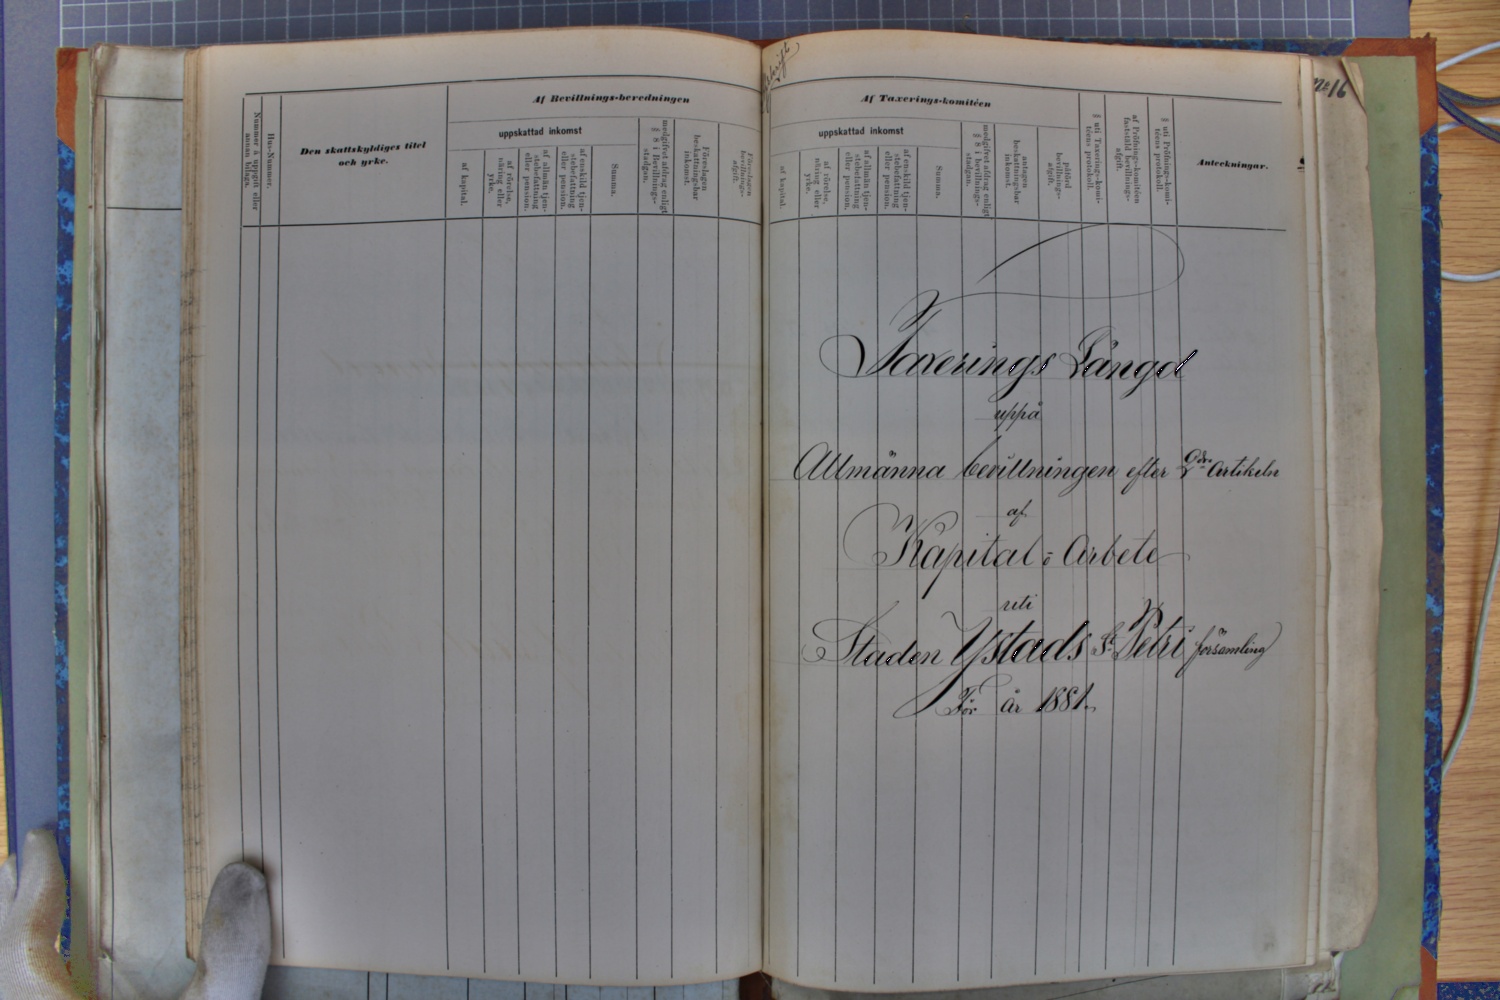 Af Bevillnings-beredningen
uppskattad inkomst
Nummer å uppgift eller annan bilaga.
Hus-Nummer.
Den skattskyldiges titel
och yrke.
af kapital.
af rörelse, näring eller yrke.
af allmän tjenstebefattning eller pension.
af enskild tjenstebefattning eller pension.
Summa.
medgifvet afdrag enligt § 8 i Bevillnings-stadgan.
Föreslagen beskattningsbar inkomst.
Föreslagen bevillnings-afgift.
Af Taxerings-komitéen
uppskattad inkomst
af kapital.
af rörelse, näring eller yrke.
af allmän tjenstebefattning eller pension.
af enskild tjenstebefattning eller pension.
Summa.
medgifvet afdrag enligt § 8 i bevillnings-stadgan.
antagen beskattningsbar inkomst.
påförd bevillnings-afgift.
§ uti Taxerings-komitéens protokoll.
af Pröfnings-komitéen fastställd bevillnings-afgift.
§ uti Pröfnings-komitéens protokoll.
Anteckningar.
№ 16
Taxerings Längd
uppå
Allmänna bevillningen efter 2dra Artikeln
af
Kapital o Arbete
uti
Staden Ystads St Petri församling
För år 1881.